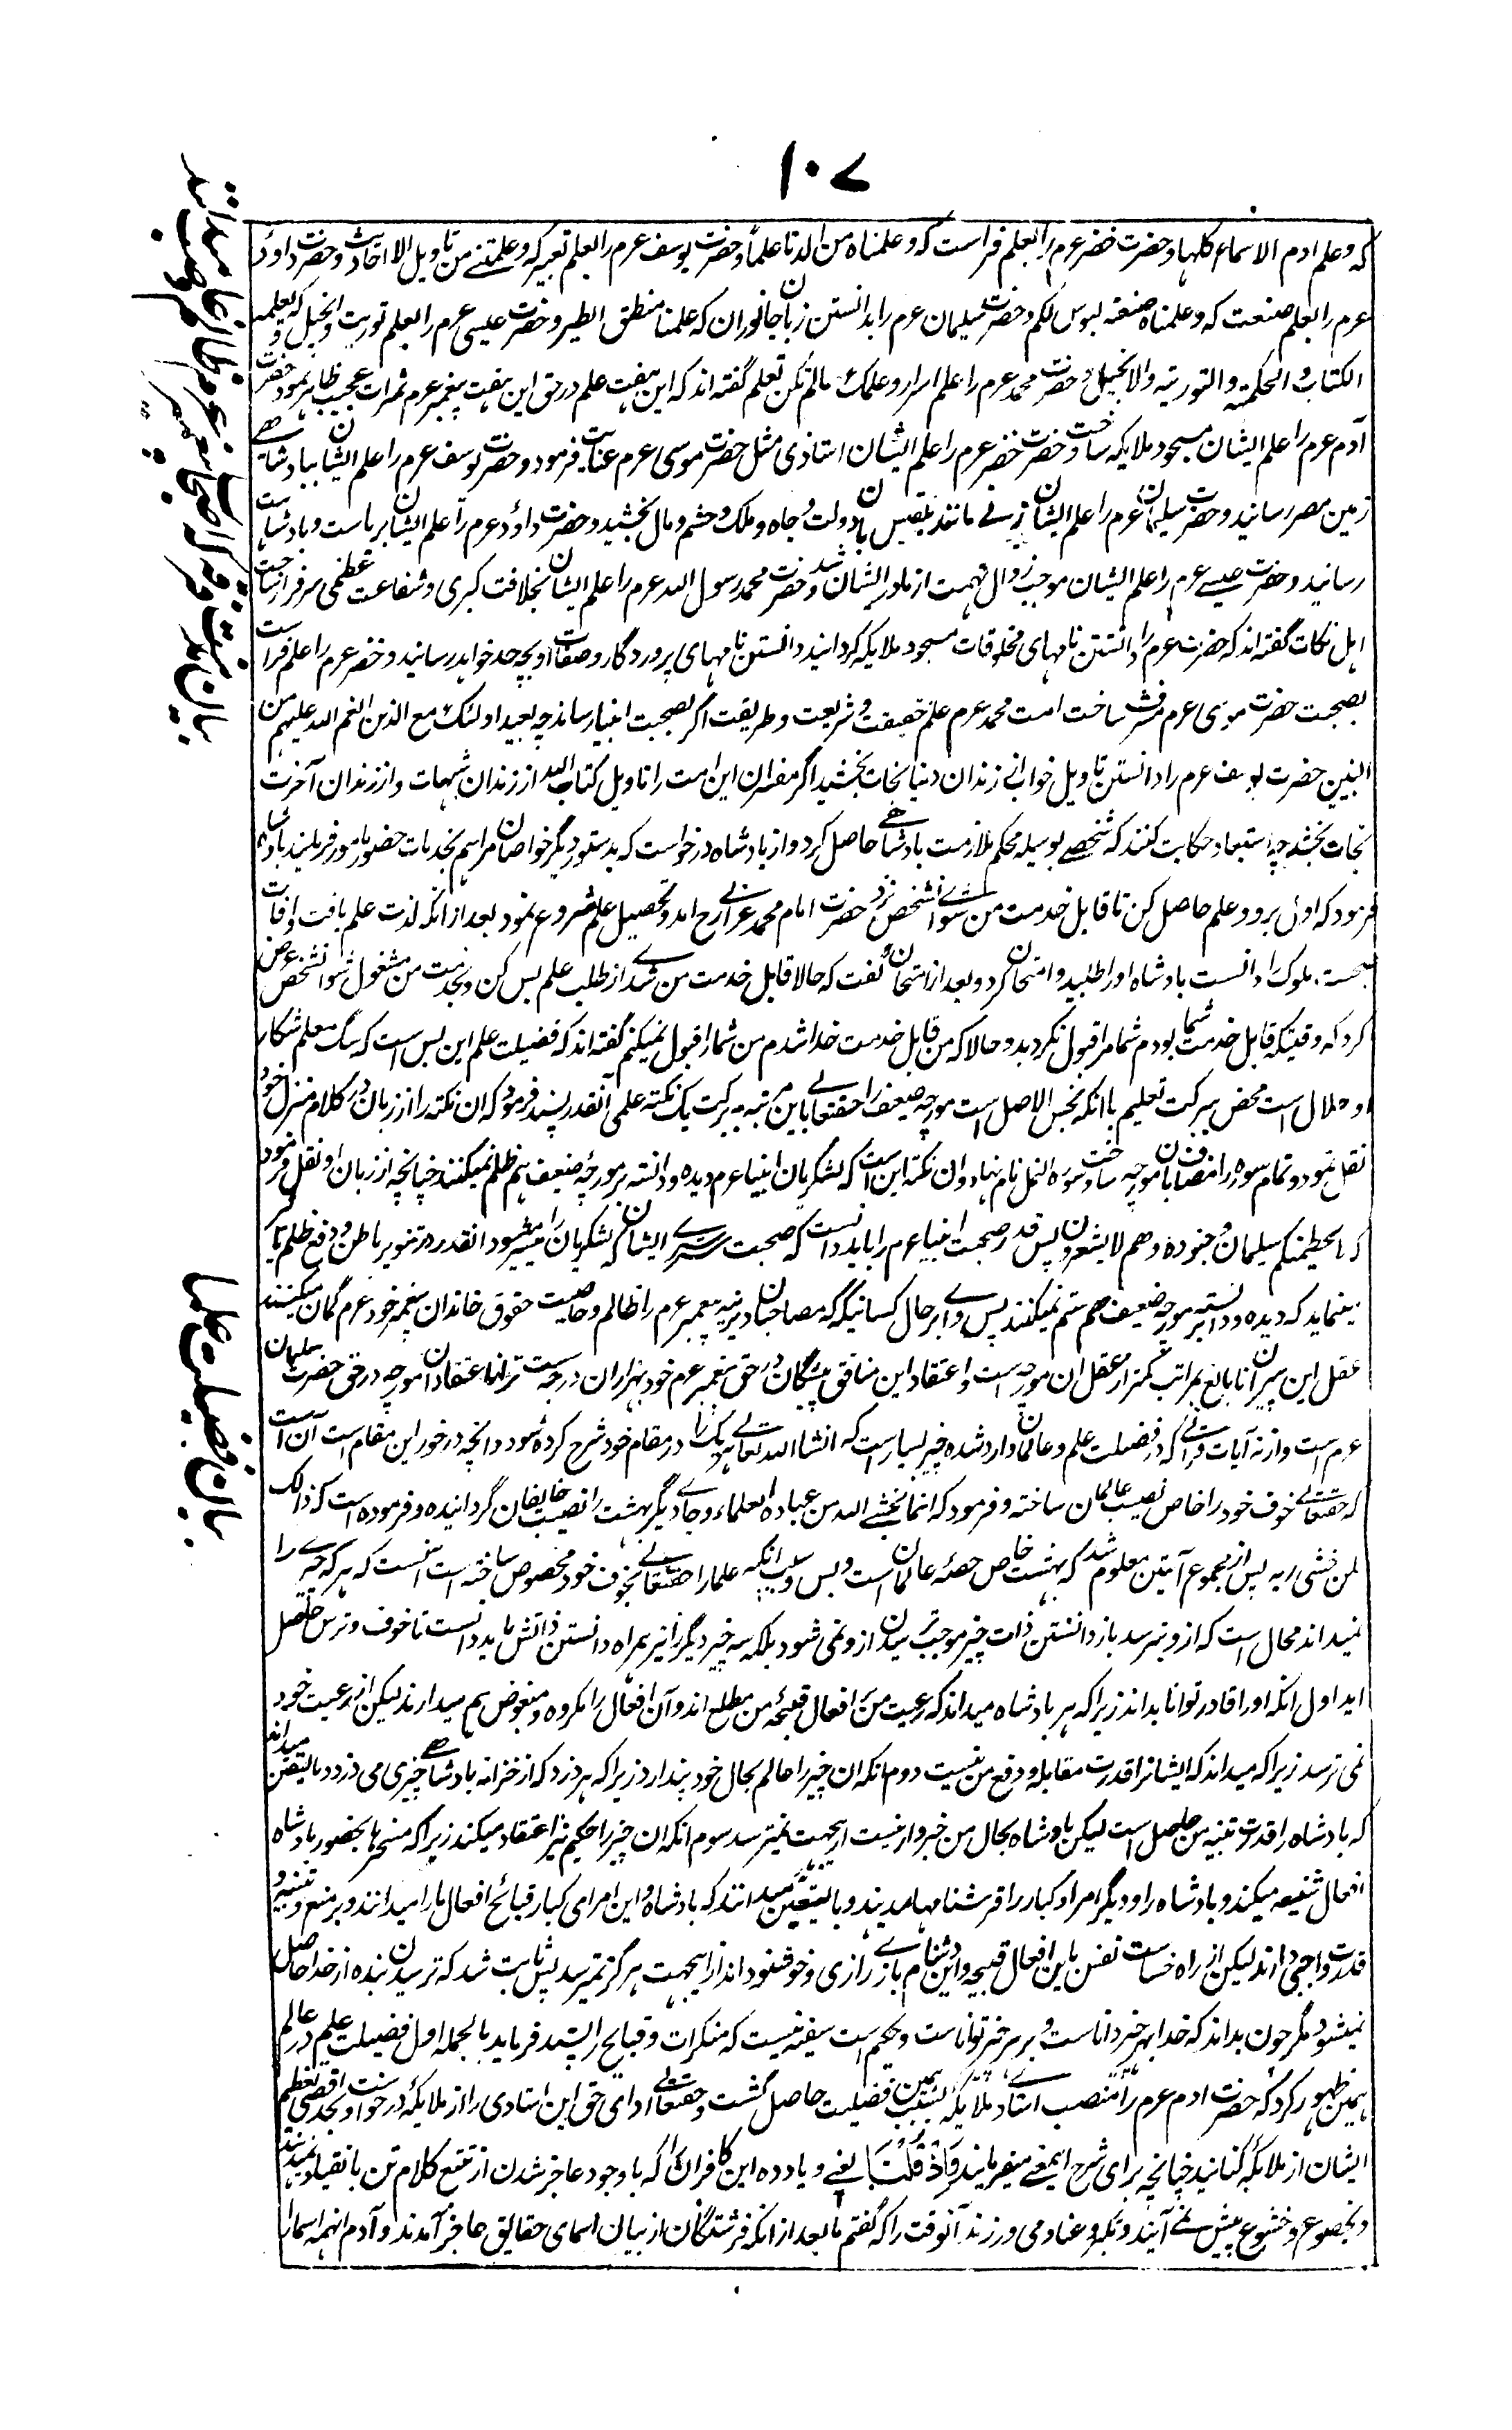 ۱۰۷
که و علم ادم الاسماء کلها و حضرت خضر عرم را بعلم فراست که و علمناه من لدنا علماً و حضرت یوسف عرم را بعلم تعبیر که و علمتنی من تاویل الاحادیث و حضرت داؤد
عرم را بعلم صنعت که و علمناه صنعة لبوس لکم و حضرت سلیمان عرم را بدانستن زبان جانوران که علمنا منطق الطیر و حضرت عیسی عرم را بعلم توریت و انجیل که و یعلمه
الکتاب و الحکمة و التوریة و الانجیل و حضرت محمد عرم را علم اسرار و علمک مالم تکن تعلم گفته اند که این هفت علم در حق این هفت پیغمبر عرم ثمرات عجیب ظاهر نمود حضرت
آدم عرم را علم ایشان مسجود ملایکه ساخت و حضرت خضر عرم را علم ایشان استاذی مثل حضرت موسی عرم عنایت فرمود و حضرت یوسف عرم را علم ایشان بپادشاهی
زمین مصر رسانید و حضرت سلیمان عرم را علم ایشان زنی مانند بلقیس با دولت و جاه و ملک و حشم و مال بخشید و حضرت داؤد عرم را علم ایشان بریاست و بادشاهت
رسانید و حضرت عیسی عرم را علم ایشان موجب زوال تهمت از مادر ایشان شد و حضرت محمد رسول الله عرم را علم ایشان بخلافت کبری و شفاعت عظمی سرفراز ساخت
اهل نکات گفته اند که حضرت عرم را دانستن نامهای مخلوقات مسجود ملایکه گردانید دانستن نامهای پروردگار و صفات او بچه حد خواهد رسانید و خضر عرم را علم فراست
بصحبت حضرت موسی عرم مشرف ساخت امت محمد عرم علم حقیقت و شریعت و طریقت اگر بصحبت انبیا رساند چه بعید اولئک مع الذین انعم الله علیهم من
النبین حضرت یوسف عرم را دانستن تاویل خواب از زندان دنیا نجات بخشید اگر مفسران این امت را تاویل کتاب الله از زندان شبهات و از زندان آخرت
نجات بخشد چه استبعاد حکایت کنند که شخصی بوسیله محکم ملازمت بادشاهی حاصل کرد و از بادشاه درخواست که بدستور دیگر خواصان مرا هم بخدمات حضور مامور فرمایند بادشاه
فرمود که اول برو و علم حاصل کن تا قابل خدمت من شوی آنشخص نزد حضرت امام محمد غزالی رح امد و تحصیل علم شروع نمود بعد از انکه لذت علم یافت و افات
صحبت ملوک را دانست بادشاه او را طلبید و امتحان کرد و بعد از امتحان گفت که حالا قابل خدمت من شدی از طلب علم بس کن و بخدمت من مشغول شو آنشخص عرض
کرد که وقتیکه قابل خدمت شما بودم شما مرا قبول نکردید و حالا که من قابل خدمت خدا شدم من شما را قبول نمیکنم گفته اند که فضیلت علم این بس است که سگ معلم شکار
او حلال است محض ببرکت تعلیم با انکه نجس الاصل است مورچه ضعیف را حقتعالی باین مرتبه ببرکت یک نکته علمی آنقدر پسند فرمود که ان نکته را از زبان او در کلام منزل خود
نقل نمود و تمام سوره را مضاف بان مورچه ساخت و سوره النمل نام نهاد و ان نکته این است که لشکریان انبیا عرم دیده و دانسته بر مورچهٔ ضعیف هم ظلم نمیکنند چنانچه از زبان او نقل فرمود
که لا یحطمنکم سلیمان و جنوده و هم لا یشعرون پس قدر صحبت انبیا عرم را باید دانست که صحبت سرسری ایشان که لشکریان را میسر میشود انقدر در تنویر باطن و دفع ظلم تاثیر
مینماید که دیده و دانسته بر مورچه ضعیف هم ستم نمیکنند پس وای بر حال کسانیکه که مصاحبان دیرینه پیغمبر عرم را ظالم و خاصب حقوق خاندان پیغمبر خود عرم گمان میکنند
عقل این پیران نابالغ بمراتب کمتر از عقل ان مورچه است و اعتقاد این منافق پیشگان در حق پیغمبر عرم خود بهزاران درجه پست تر از اعتقاد ان مورچه در حق حضرت سلیمان
عرم است و از نه آیات قرانی که در فضیلت علم و عالمان وارد شده چیز بسیار است که انشاء الله تعالی هر یک را در مقام خود شرح کرده شود و انچه درخور این مقام است آن است
که حقتعالی خوف خود را خاص نصیب عالمان ساخته و فرمود که انما یخشی الله من عباده العلماء و جای دیگر بهشت را نصیب خایفان گردانیده و فرموده است که ذلک
لمن خشی ربه پس از مجموع آیتین معلوم شد که بهشت خاص حصهٔ عالمان است و بس و سبب انکه علما را حقتعالی بخوف خود مخصوص ساخته است اینست که هر که چیزی را
نمیداند محال است که ازو بترسد باز دانستن ذات چیز موجب ترسیدن ازو نمی شود بلکه سه چیز دیگر را نیز همراه دانستن ذاتش باید دانست تا خوف و ترس حاصل
اید اول انکه او را قادر توانا بداند زیرا که هر بادشاه میداند که رعیت من افعال قبیحهٔ من مطلع اند و آن افعال را مکروه و مبغوض هم میدارند لیکن از رعیت خود
نمی ترسد زیرا که میداند که ایشانرا قدرت مقابله و دفع من نیست دوم انکه ان چیز را عالم بحال خود پندارد زیرا که هر دزد که از خزانه بادشاهی چیزی می دزدد بالیقین میداند
که بادشاه را قدرت تنبیه من حاصل است لیکن بادشاه بحال من خبردار نیست ازیجهت نمیترسد سوم انکه ان چیز را حکیم نیز اعتقاد میکند زیرا که مسخرها بحضور بادشاه
افعال شنیعه میکند و بادشاه را و دیگر امرا و کبار را قر شنامها میدیند و بالیقین میدانند که بادشاه و این امرای کبار قبائح افعال ما را میدانند و بر منع و تنبیه
قدرت واجبی دارند لیکن از راه خساست نفس باین افعال قبیحه و این دشنام بازی راضی و خوشنود اند ازیجهت هرگز نمیترسد پس ثابت شد که ترسیدن بنده از خدا حاصل
نمیشود مگر چون بداند که خدا بهر چیز داناست و بر هر چیز تواناست و حکیم است سفیه نیست که منکرات و قبایح را پسند فرماید بالجمله اول فضیلت علم در عالم
همین ظهور کرد که حضرت ادم عرم را منصب استادی ملایکه بسبب همین فضیلت حاصل گشت و حقتعالی ادای حق این استادی را از ملایکه درخواست و بحد اقصی تعظیم
ایشان از ملایکه کنانید چنانچه برای شرح اینمعنی میفرمایند وَ اِذْ قُلْنَا یعنی و یاد ده این کافران را که با وجود عاجز شدن از تتبع کلام من بانقیاد نمیدهند
و بخضوع و خشوع پیش نمی آیند و تکبر و عناد می ورزند آنوقت را که گفتم ما بعد از انکه فرشتگان از بیان اسمای حقایق عاجز آمدند و آدم انهمه اسما را
بیان فضیلت علما